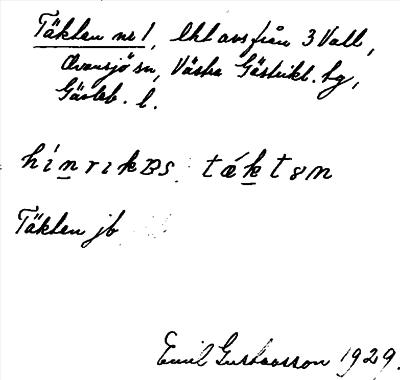 Täkten nr 1, lht avs från 3 Vall,
Ovansjö sn, Västra Gästrikl. tg,
Gävleb. l.
hínrikɞs tǽktɞn
Täkten jb
Emil Gustavsson 1929.